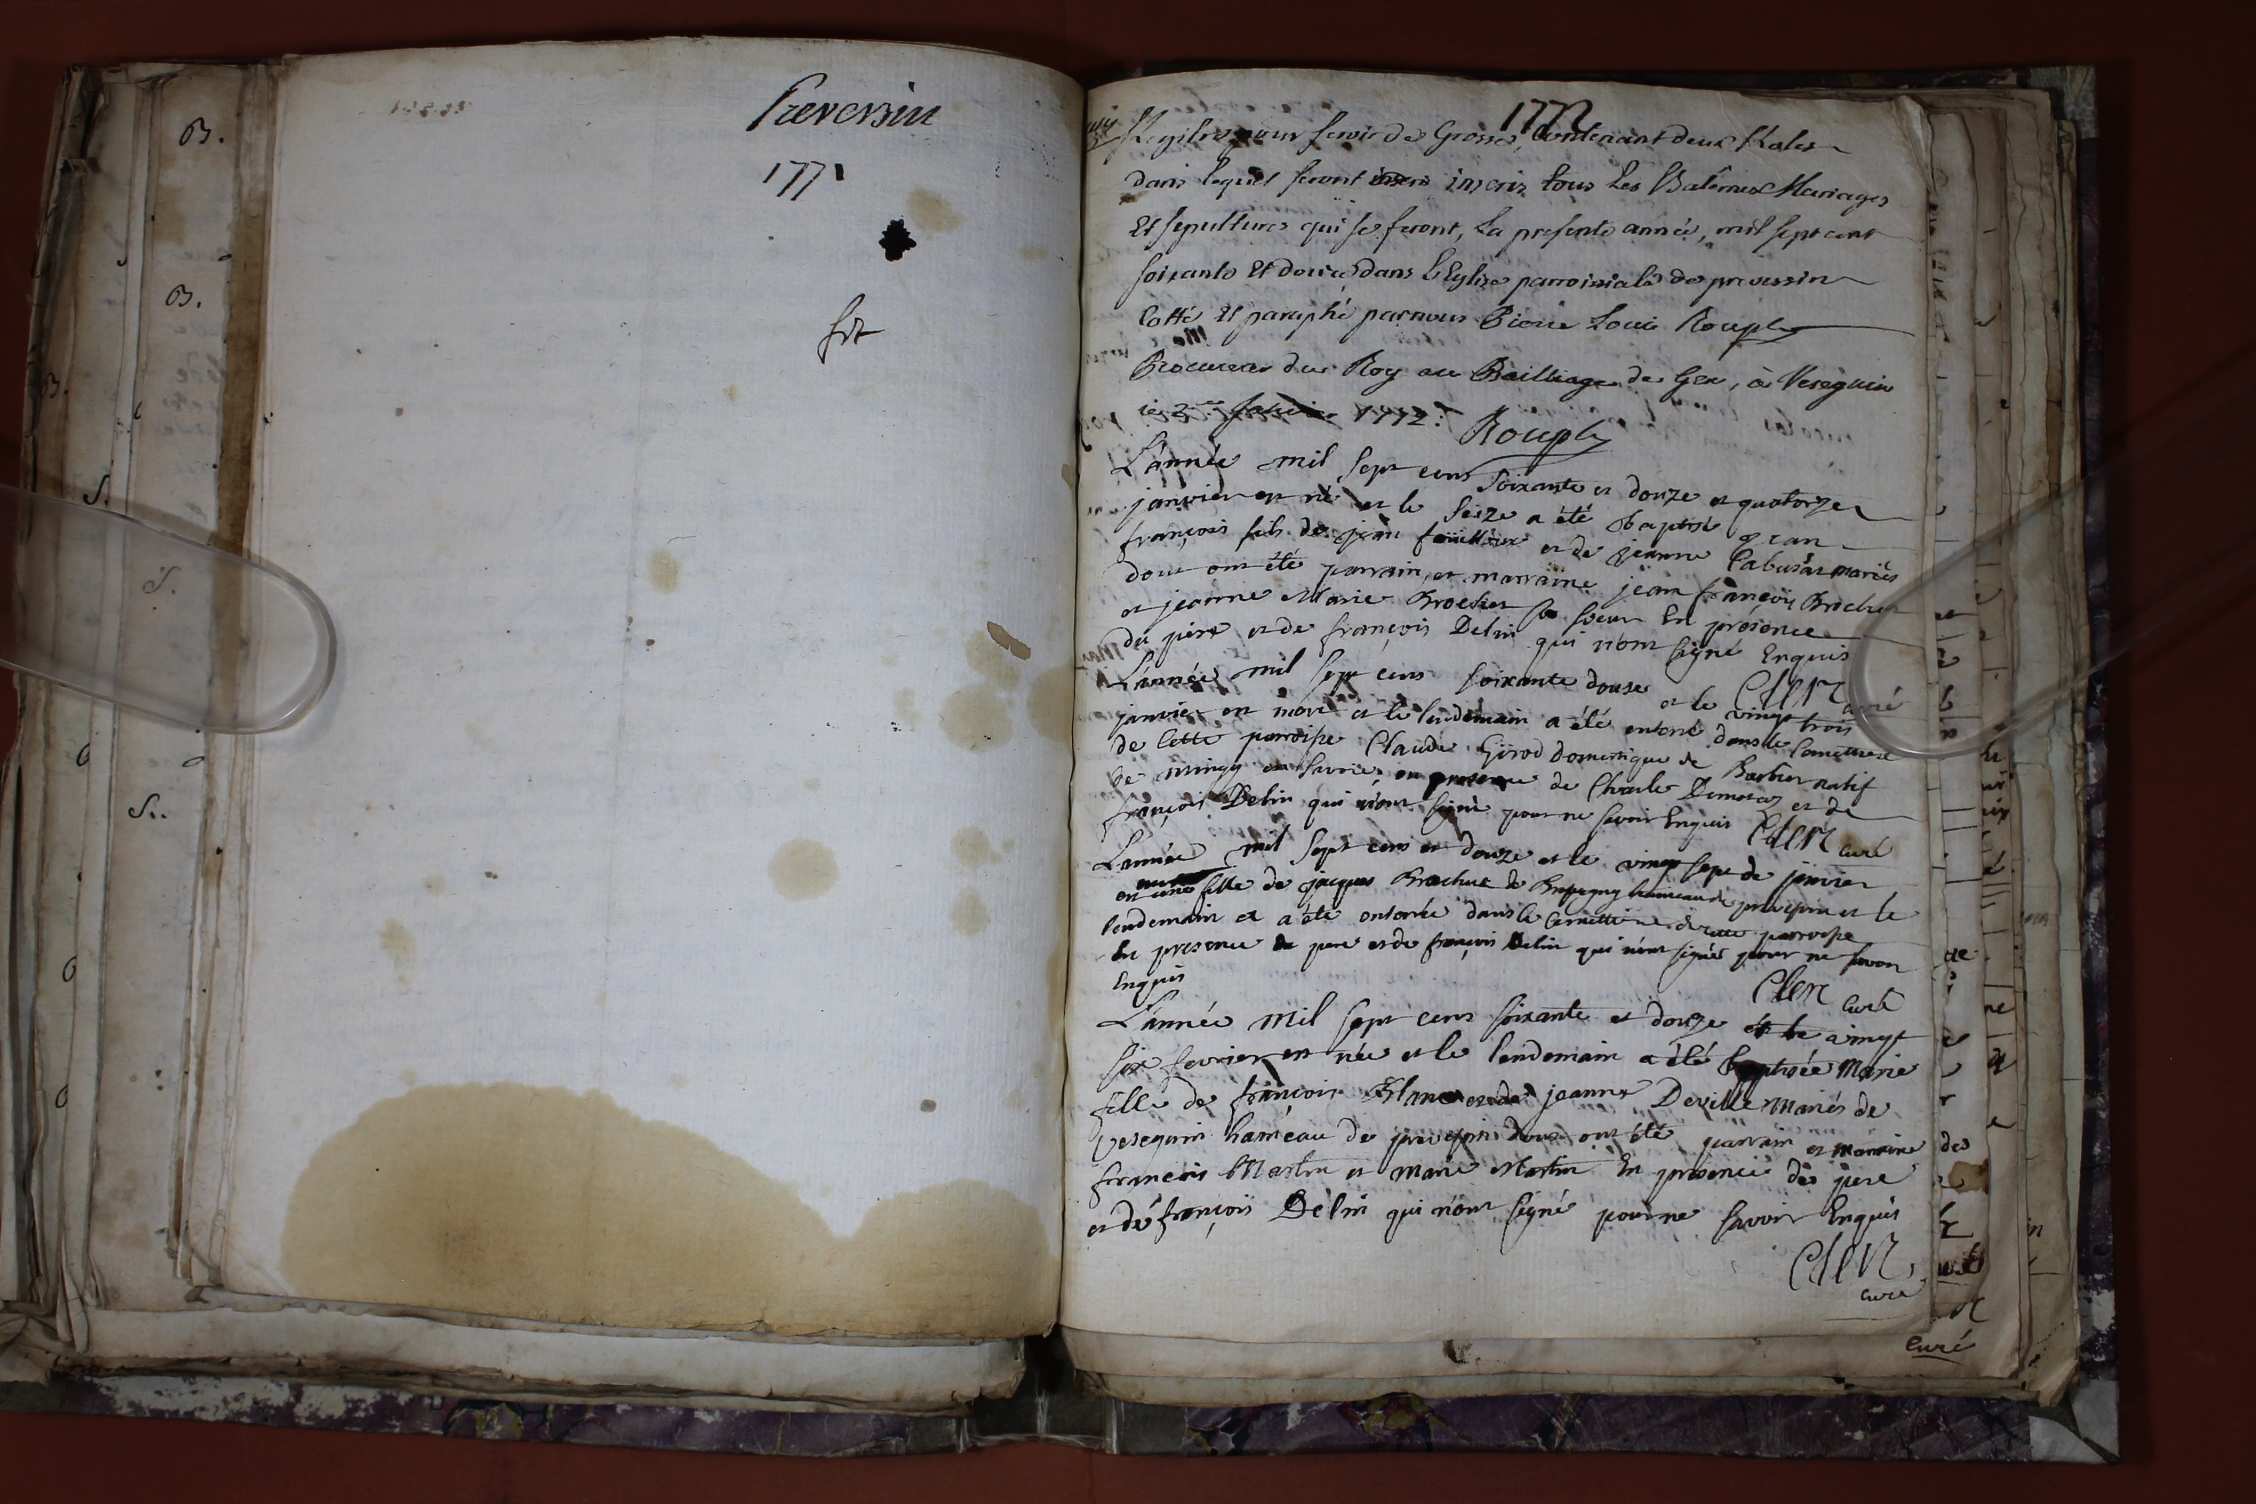 B.
B.
B.
S.
S.
S.
Preversin
1771
fit
1772
Registre pour servir de Grosse, Contenant deux
dans lequel seront inscris tous Les Batêmes Mariages
Et sepultures qui se feront, La presente année, mil sept cent
soixante Et douze dans L'Eglise parroissiale de prevessin
Cotté Et paraphé par nous Pierre Louis Rouph
Procureur du Roy au Bailliage de Gex, à Vesegnin
le 2 Janvier 1772. Rouph
L'année mil sept cens soixante et douze et quatorze
janvier est né et le seize a été baptisé jean
françois fils de jean fouilloux et de jeanne Cabusat mariés
dont ont été parrain et marraine jean françois Brochut
et jeanne Marie Brochut sa soeur En présence
du père et de françois Delin qui n'ont signé Enquis
Clerc curé
L'année mil sept cens soixante douze et le vingt trois
janvier est mort et le lendemain a été enterré dans le Cemettiere
de Cette parroisse Claude Girod domestique de Barbier natif
de Mingy en Savoie en presence de Charle Dumotaz et de
françois Delin qui n'ont signé pour ne savoir Enquis Clerc curé
L'année mil sept cens et douze et le vingt sept de janvier
est fille de jacques Brochut de Brétigny hameau de prevessin et le
lendemain et a été enterrée dans le Cemettiere de cette parroisse
En presence du pere et de françois Delin qui n'ont signés pour ne savoir
Enquis
Clerc Curé
L'année mil sept cens soixante et douze et le vingt
six fevrier est née et le lendemain a été baptisée Marie
fille de françois Blanc et de jeanne Deville mariés de
vesegnin hameau de prevessin dont ont été parrain et marraine
francois Martin et marie Martin En presence du père
et de françois Delin qui n'ont signé pour ne savoir Enquis
Clerc
curé
curé